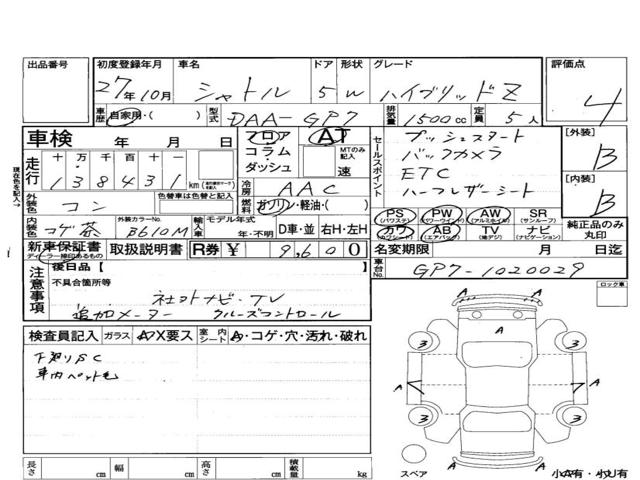 出品番号 初度登録年月 車名 ドア 形状 グレード 評価点
27年10月 シャトル 5 W ハイブリッドZ 4
車歴 自家用・( ) 型式 DAA-GP7 排気量 1500cc 定員 5人
車検 年 月 日 フロア コラム ダッシュ AT MTのみ記入 速
セールスポイント プッシュスタート
バックカメラ
ETC
ハーフレザーシート
[外装] B
[内装] B
現在色を記入→
走行 十 万 千 百 十 一
138431km
冷房 AAC
燃料 ガソリン・軽油・( )
外装色 コン 色替車は色替と記入
内装色 コゲ茶 外装カラーNo. B610M 輸入車 モデル年式 年・不明 D車・並 右H・左H
PS (パワステ) PW (パワーウインドウ) AW (アルミホイル) SR (サンルーフ)
カワ (カワシート) AB (エアバック) TV (地デジ) ナビ (ナビゲーション)
純正品のみ丸印
新車保証書 ディーラー捺印あるもの 取扱説明書 R券 ¥ 9,600
名変期限 月 日迄
車台No. GP7-1020029
注意事項 後日品【 】
不具合箇所等
社外ナビ・TV
追加メーター クルーズコントロール
ロック車
検査員記入 ガラス A・X要ス 室内シート A・コゲ・穴・汚れ・破れ
下廻りSC
車内ペット毛
A
A
3 3
A A A
3 3
スペア A 小A有・小U有
長さ cm 幅 cm 高さ cm 積載量 kg